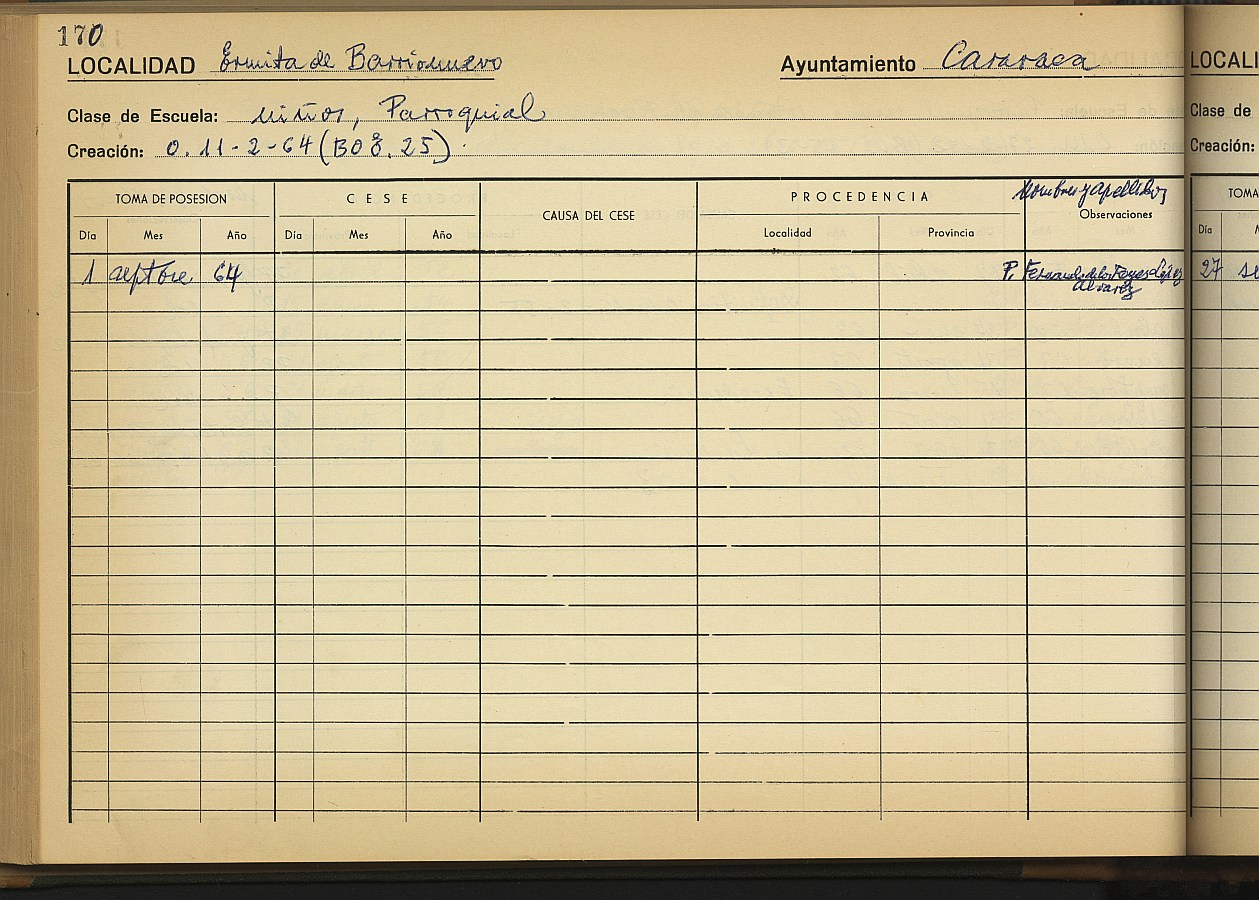 170
LOCALIDAD Ermita de Barrionuevo Ayuntamiento Caravaca LOCALI
Clase de Escuela: niños, Parroquial Clase de
Creación: O. 11-2-64 (BOE. 25). Creación:
TOMA DE POSESION CESE CAUSA DEL CESE PROCEDENCIA Nombres y apellidos TOMA
Observaciones
Día Mes Año Día Mes Año Localidad Provincia Día
1 septbre 64 P. Fernando de los Reyes López 27 se
Alvarez